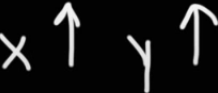 x ↑ y ↑